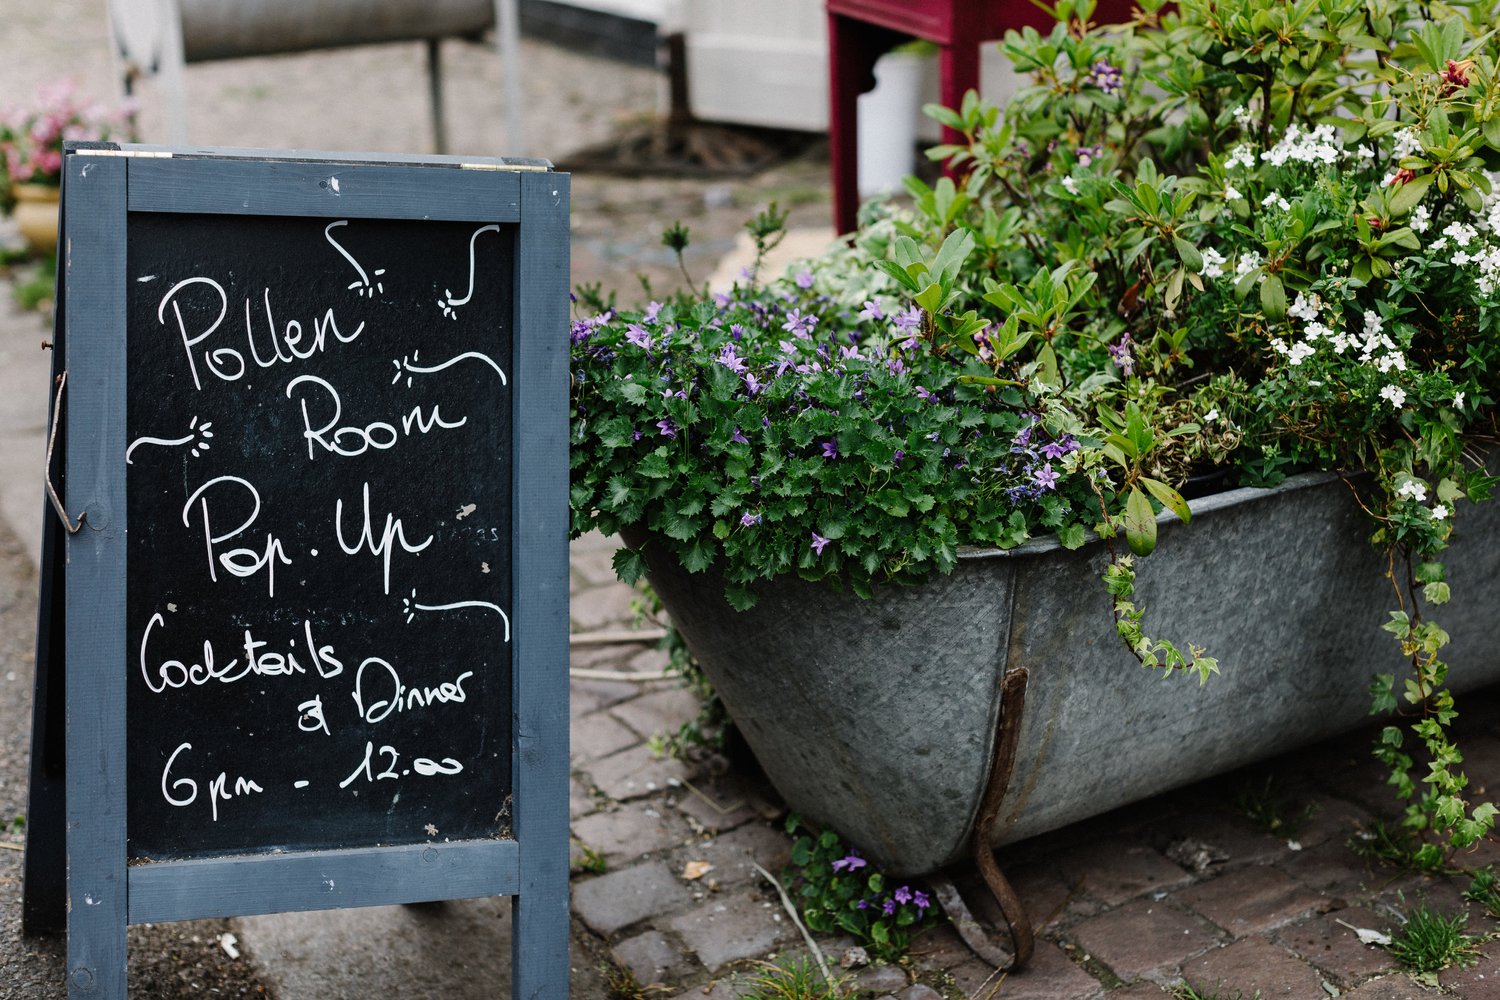 Pollen
Room
Pop. Up
Cocktails
& Dinner
6pm - 12.00